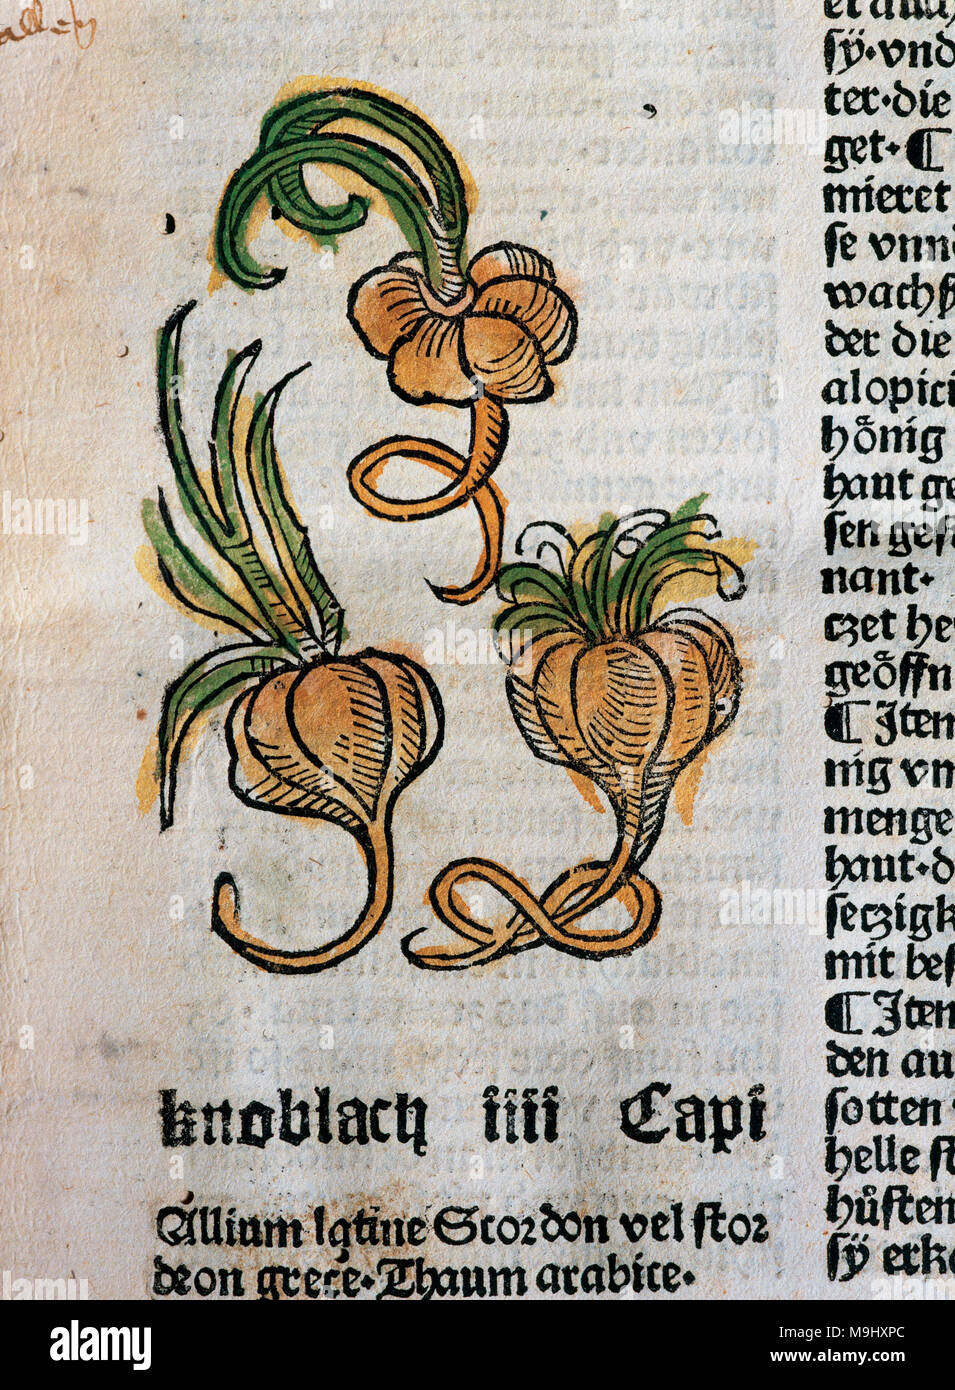 alleh
knoblach iiii Capi
Allium latine Scordon vel scor
deon grece. Thaum arabice.
sÿ·vnd
ter·die
get·¶
mieret
se vnnd
wachs
der die
alopici
hoͤnig
haut ge
sen gest
nant·
czet he
geoͤffn
¶ Item
nig vn
menge
haut·d
seczigk
mit bes
¶ Item
den au
sotten
helle st
huͤften
sÿ erk
alamy
Image ID: M9HXPC
www.alamy.com